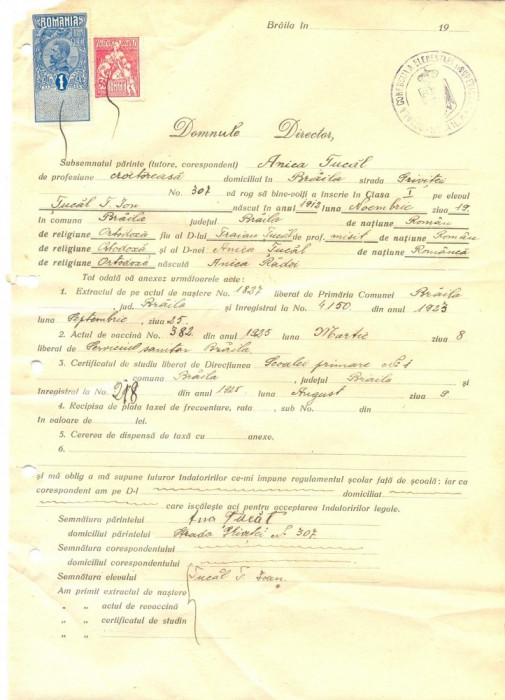 ROMANIA
1
Brăila în 19
Domnule Director,
Subsemnatul părinte (tutore, corespondent) Anica Tucăl
de profesiune croitoreasă domiciliat în Brăila strada Griviței
No. 307 vă rog să bine-voiți a înscrie în Clasa I pe elevul
Tucăl T. Ion născut în anul 1912 luna Noembrie ziua 19.
în comuna Brăila județul Brăila de națiune Român
de religiune Ortodoxă fiu al D-lui Traian Tucăl de prof. de națiune Român
de religiune Ortodoxă și al D-nei Anica Tucăl de națiune Română
de religiune Ortodoxă născută Anica Rădoi
Tot odată vă anexez următoarele acte:
1. Extractul de pe actul de naștere No 1837 liberat de Primăria Comunei Brăila
jud. Brăila și înregistrat la No. 4150 din anul 1923
luna Septembrie, ziua 25.
2. Actul de vaccină No 382 din anul 1925 luna Martie ziua 8
liberat de Serviciul sanitar Brăila
3. Certificatul de studii liberat de Direcțiunea Școalei primare No 1
comuna Brăila, județul Brăila și
înregistrat la No. 218 din anul 1925 luna August ziua 9
4. Recipisa de plata taxei de frecuentare, rata , sub No. din
în valoare de lei.
5. Cererea de dispensă de taxă cu anexe.
6.
și mă oblig a mă supune tuturor îndatoririlor ce-mi impune regulamentul școlar față de școală: iar ca
corespondent am pe D-l domiciliat
care iscălește aci pentru acceptarea îndatoririlor legale.
Semnătura părintelui Ana Tucăl
domiciliul părintelui Strada Griviței No 307
Semnătura corespondentului
domiciliul corespondentului
Semnătura elevului Tucăl T. Ioan
Am primit extractul de naștere
„ „ actul de revaccină
„ „ certificatul de studii
„ „